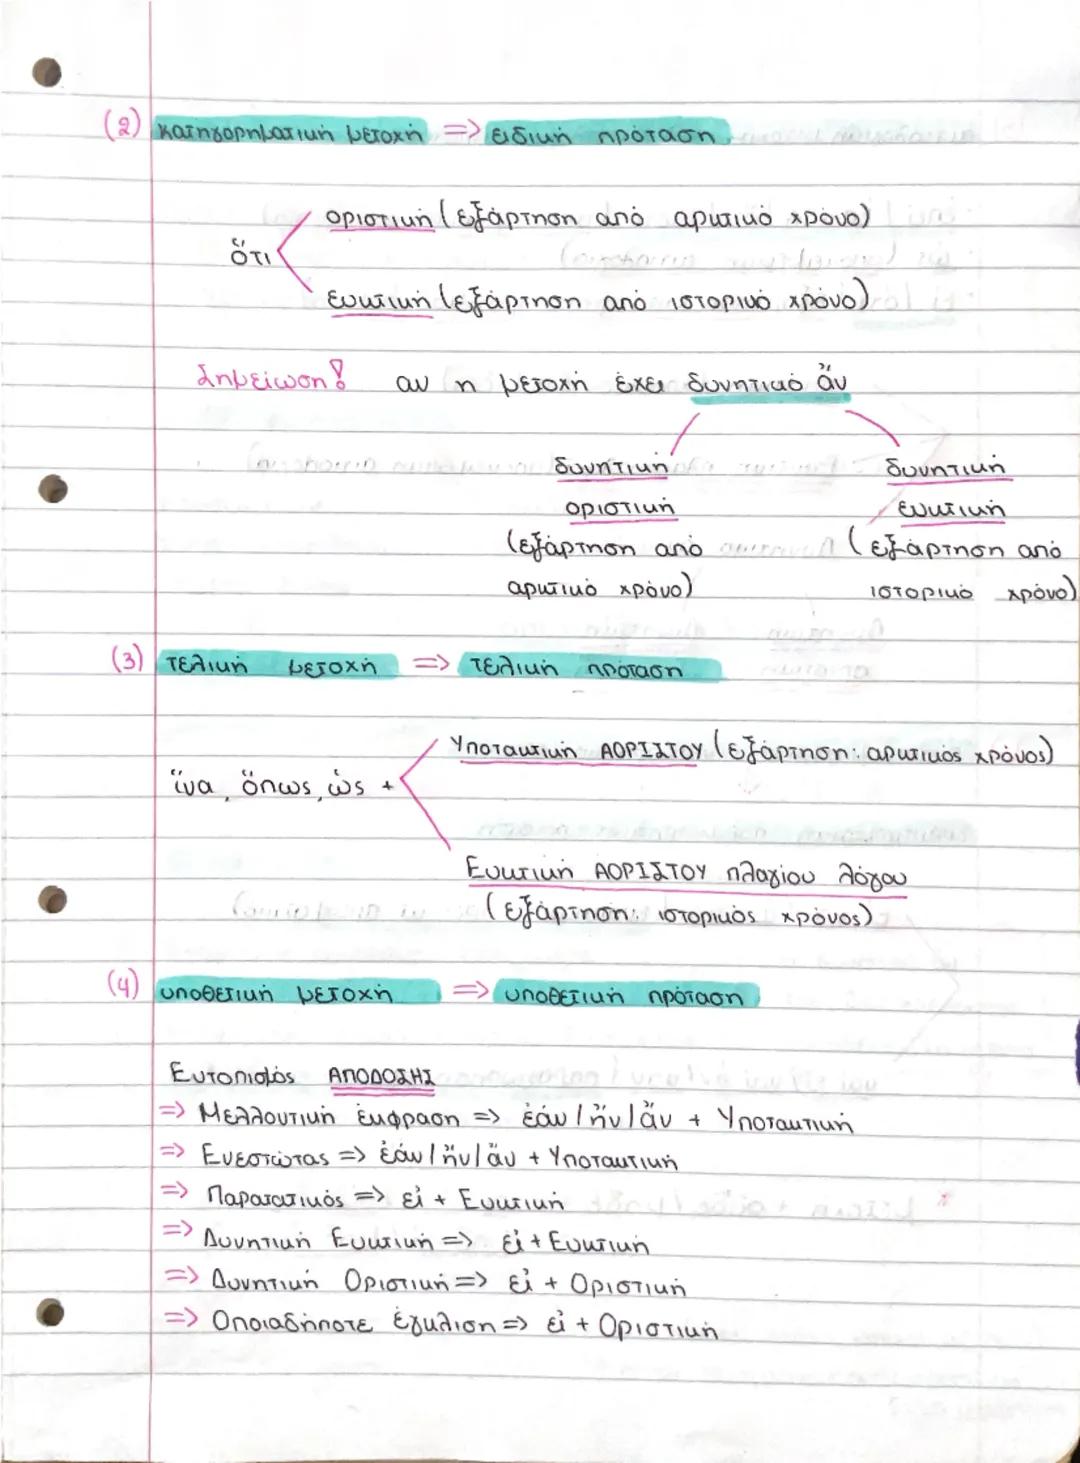 (2) κατηγορηματική μετοχή => ειδική πρόταση
οριστική (εξάρτηση από αρκτικό χρόνο)
ὅτι
ευκτική (εξάρτηση από ιστορικό χρόνο)
Σημείωση! αν η μετοχή έχει δυνητικό ἄν
δυνητική δυνητική
οριστική ευκτική
(εξάρτηση από (εξάρτηση από
αρκτικό χρόνο) ιστορικό χρόνο)
(3) τελική μετοχή => τελική πρόταση
Υποτακτική ΑΟΡΙΣΤΟΥ (εξάρτηση: αρκτικός χρόνος)
ἵνα, ὅπως, ὡς +
Ευκτική ΑΟΡΙΣΤΟΥ πλαγίου λόγου
(εξάρτηση: ιστορικός χρόνος)
(4) υποθετική μετοχή => υποθετική πρόταση
Εντοπισμός ΑΠΟΔΟΣΗΣ
=> Μελλοντική έκφραση => ἐάν/ἤν/ἄν + Υποτακτική
=> Ενεστώτας => ἐάν/ἤν/ἄν + Υποτακτική
=> Παρατατικός => εἰ + Ευκτική
=> Δυνητική Ευκτική => εἰ + Ευκτική
=> Δυνητική Οριστική => εἰ + Οριστική
=> Οποιαδήποτε έγκλιση => εἰ + Οριστική